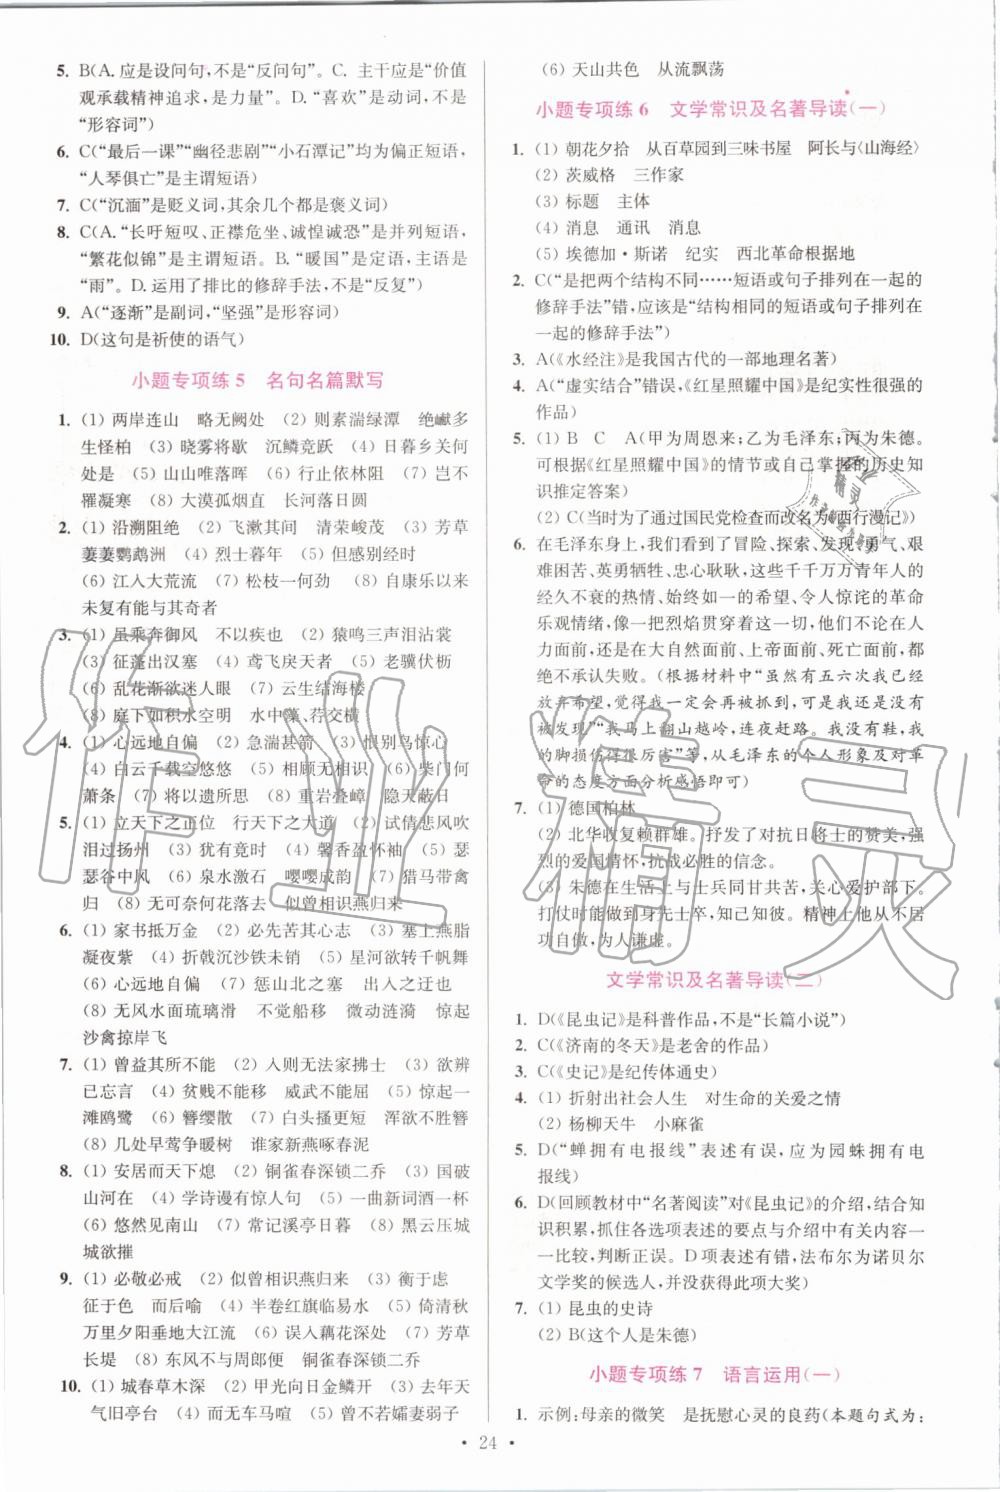 5. B(A. 应是设问句,不是“反问句”。C. 主干应是“价值
观承载精神追求,是力量”。D. “喜欢”是动词,不是
“形容词”)
6. C(“最后一课”“幽径悲剧”“小石潭记”均为偏正短语,
“人琴俱亡”是主谓短语)
7. C(“沉湎”是贬义词,其余几个都是褒义词)
8. C(A. “长吁短叹、正襟危坐、诚惶诚恐”是并列短语,
“繁花似锦”是主谓短语。B. “暖国”是定语,主语是
“雨”。D. 运用了排比的修辞手法,不是“反复”)
9. A(“逐渐”是副词,“坚强”是形容词)
10. D(这句是祈使的语气)
小题专项练 5 名句名篇默写
1. (1) 两岸连山 略无阙处 (2) 则素湍绿潭 绝巘多
生怪柏 (3) 晓雾将歇 沉鳞竞跃 (4) 日暮乡关何
处是 (5) 山山唯落晖 (6) 行止依林阻 (7) 岂不
罹凝寒 (8) 大漠孤烟直 长河落日圆
2. (1) 沿溯阻绝 (2) 飞漱其间 清荣峻茂 (3) 芳草
萋萋鹦鹉洲 (4) 烈士暮年 (5) 但感别经时
(6) 江入大荒流 (7) 松枝一何劲 (8) 自康乐以来
未复有能与其奇者
3. (1) 虽乘奔御风 不以疾也 (2) 猿鸣三声泪沾裳
(3) 征蓬出汉塞 (4) 鸢飞戾天者 (5) 老骥伏枥
(6) 乱花渐欲迷人眼 (7) 云生结海楼
(8) 庭下如积水空明 水中藻、荇交横
4. (1) 心远地自偏 (2) 急湍甚箭 (3) 恨别鸟惊心
(4) 白云千载空悠悠 (5) 相顾无相识 (6) 柴门何
萧条 (7) 将以遗所思 (8) 重岩叠嶂 隐天蔽日
5. (1) 立天下之正位 行天下之大道 (2) 试倩悲风吹
泪过扬州 (3) 犹有竟时 (4) 馨香盈怀袖 (5) 瑟
瑟谷中风 (6) 泉水激石 嘤嘤成韵 (7) 猎马带禽
归 (8) 无可奈何花落去 似曾相识燕归来
6. (1) 家书抵万金 (2) 必先苦其心志 (3) 塞上燕脂
凝夜紫 (4) 折戟沉沙铁未销 (5) 星河欲转千帆舞
(6) 心远地自偏 (7) 惩山北之塞 出入之迂也
(8) 无风水面琉璃滑 不觉船移 微动涟漪 惊起
沙禽掠岸飞
7. (1) 曾益其所不能 (2) 入则无法家拂士 (3) 欲辨
已忘言 (4) 贫贱不能移 威武不能屈 (5) 惊起一
滩鸥鹭 (6) 簪缨散 (7) 白头搔更短 浑欲不胜簪
(8) 几处早莺争暖树 谁家新燕啄春泥
8. (1) 安居而天下熄 (2) 铜雀春深锁二乔 (3) 国破
山河在 (4) 学诗谩有惊人句 (5) 一曲新词酒一杯
(6) 悠然见南山 (7) 常记溪亭日暮 (8) 黑云压城
城欲摧
9. (1) 必敬必戒 (2) 似曾相识燕归来 (3) 衡于虑
征于色 而后喻 (4) 半卷红旗临易水 (5) 倚清秋
万里夕阳垂地大江流 (6) 误入藕花深处 (7) 芳草
长堤 (8) 东风不与周郎便 铜雀春深锁二乔
10. (1) 城春草木深 (2) 甲光向日金鳞开 (3) 去年天
气旧亭台 (4) 而无车马喧 (5) 曾不若孀妻弱子
(6) 天山共色 从流飘荡
小题专项练 6 文学常识及名著导读(一)
1. (1) 朝花夕拾 从百草园到三味书屋 阿长与〈山海经〉
(2) 茨威格 三作家
(3) 标题 主体
(4) 消息 通讯 消息
(5) 埃德加·斯诺 纪实 西北革命根据地
2. C(“是把两个结构不同……短语或句子排列在一起的
修辞手法”错,应该是“结构相同的短语或句子排列在
一起的修辞手法”)
3. A(《水经注》是我国古代的一部地理名著)
4. A(“虚实结合”错误,《红星照耀中国》是纪实性很强的
作品)
5. (1) B C A(甲为周恩来;乙为毛泽东;丙为朱德。
可根据《红星照耀中国》的情节或自己掌握的历史知
识推定答案)
(2) C(当时为了通过国民党检查而改名为《西行漫记》)
6. 在毛泽东身上,我们看到了冒险、探索、发现、勇气、艰
难困苦、英勇牺牲、忠心耿耿,这些千千万万青年人的
经久不衰的热情、始终如一的希望、令人惊诧的革命
乐观情绪,像一把烈焰贯穿着这一切,他们不论在人
力面前,或者在大自然面前、上帝面前、死亡面前,都
绝不承认失败。(根据材料“虽然有五六次我已经
放弃希望,觉得我一定会再被抓到,可我还是没有
被发现”“我马上翻山越岭,连夜赶路。我没有鞋,我
的脚损伤得很厉害”等,从毛泽东的个人形象及对革
命的态度方面分析感悟即可)
7. (1) 德国柏林
(2) 北华收复赖群雄。抒发了对抗日将士的赞美,强
烈的爱国情怀,抗战必胜的信念。
(3) 朱德在生活上与士兵同甘共苦,关心爱护部下。
打仗时能做到身先士卒,知己知彼。精神上他从不居
功自傲,为人谦虚。
文学常识及名著导读(二)
1. D(《昆虫记》是科普作品,不是“长篇小说”)
2. C(《济南的冬天》是老舍的作品)
3. C(《史记》是纪传体通史)
4. (1) 折射出社会人生 对生命的关爱之情
(2) 杨柳天牛 小麻雀
5. D(“蝉拥有电报线”表述有误,应为园蛛拥有电报
线)
6. D(回顾教材中“名著阅读”对《昆虫记》的介绍,结合知
识积累,抓住各选项表述的要点与介绍中有关内容一
一比较,判断正误。D项表述有错,法布尔为诺贝尔
文学奖的候选人,并没获得此项大奖)
7. (1) 昆虫的史诗
(2) B(这个人是朱德)
小题专项练 7 语言运用(一)
1. 示例:母亲的微笑 是抚慰心灵的良药(本题句式为:
· 24 ·
作业精灵